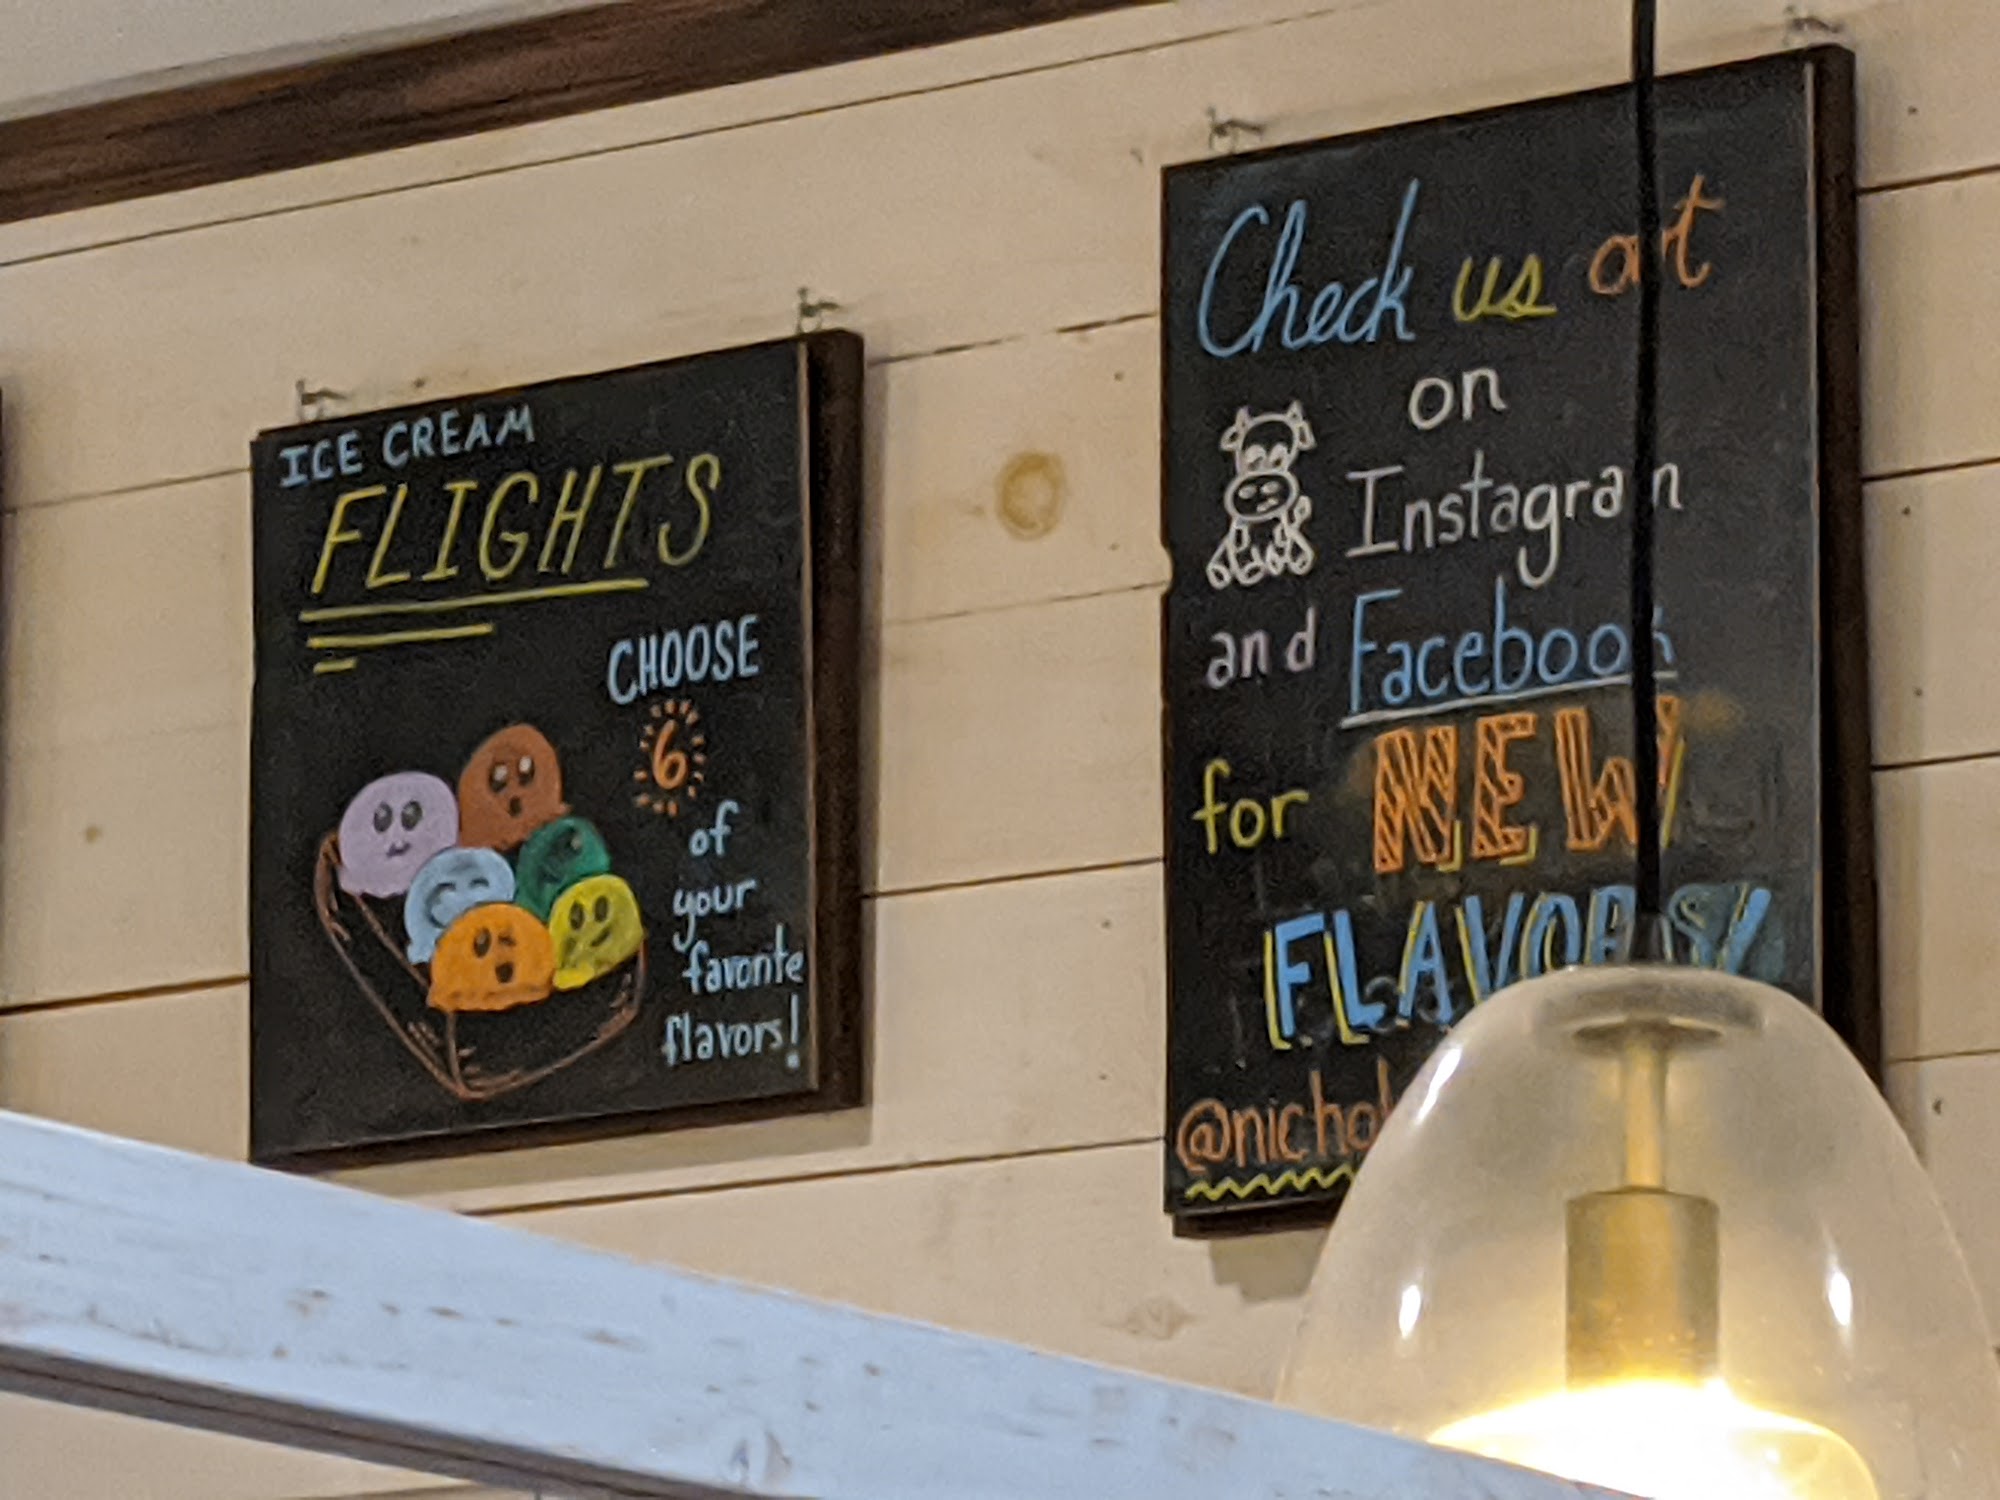 ICE CREAM
FLIGHTS
CHOOSE
6
of
your
favorite
flavors!
Check us out
on
Instagram
and Facebook
for NEW
FLAVORS!